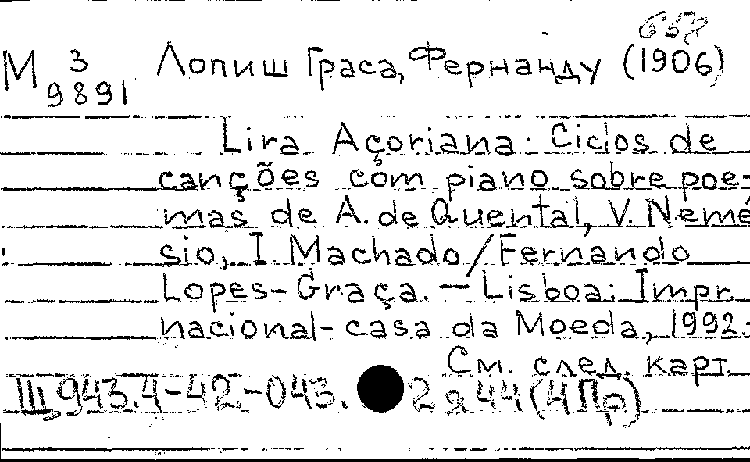 658
М 3/9891 Лопиш Граса, Фернанду (1906)
Lira Açoriana: Ciclos de
canções com piano sobre poe-
mas de A. de Quental, V. Nemé-
sio, I Machado/Fernando
Lopes-Graça. — Lisboa: Impr.
nacional-casa da Moeda, 1992.
См. след. карт.
Щ943.4-42-043. 2 я44(4Пр)